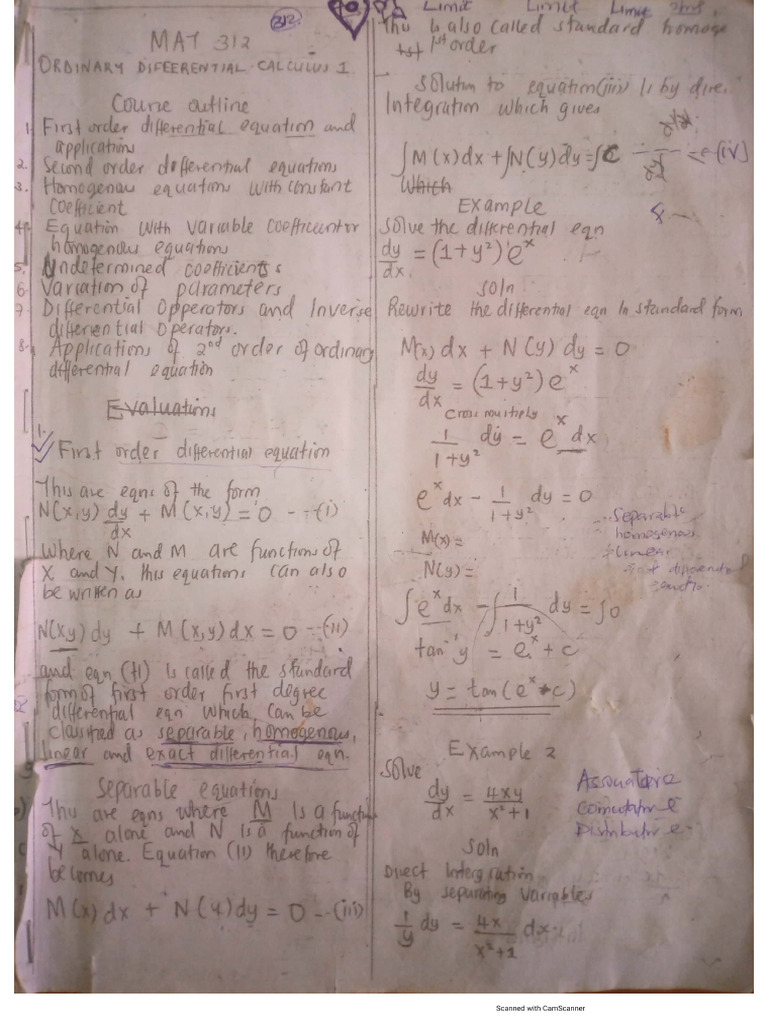 312
MAT 312
ORDINARY DIFFERENTIAL CALCULUS 1
Course outline
1. First order differential equation and
application
2. Second order differential equations
3. Homogenous equations with constant
coefficient
4. Equation with variable coefficient or
homogenous equations
5. Undetermined coefficients
6. Variation of parameters
7. Differential Opperators and Inverse
differential operators.
8. Applications of 2nd order of ordinary
differential equation
Evaluations
1.
First order differential equation
This are eqns of the form
N(x,y) dy/dx + M(x,y) = 0 --- (i)
Where N and M are functions of
X and Y. this equations can also
be written as
N(x,y) dy + M(x,y) dx = 0 -- (ii)
and eqn (ii) is called the standard
form of first order first degree
differential eqn which can be
classified as separable, homogenous,
linear and exact differential eqn.
Separable equations
This are eqns where M is a function
of x alone and N is a function of
y alone. Equation (ii) therefore
becomes
M(x) dx + N(y) dy = 0 -- (iii)
Limit Limit Limit
This is also called standard homoge
1st order
Solution to equation (iii) is by dire.
Integration which gives
∫M(x)dx + ∫N(y)dy = ∫C (iv)
Which
Example
Solve the differential eqn
dy/dx = (1+y²)e^x
Soln
Rewrite the differential eqn in standard form
M(x) dx + N(y) dy = 0
dy/dx = (1+y²)e^x
Cross multiply
1/(1+y²) dy = e^x dx
e^x dx - 1/(1+y²) dy = 0
M(x) =
N(y) =
Separable
homogenous
Linear
∫e^x dx - ∫1/(1+y²) dy = ∫0
tan⁻¹ y = e^x + c
y = tan(e^x + c)
Example 2
Solve
dy/dx = 4xy/(x²+1)
Associative
Comutative
Distributive
Soln
Direct Intergration
By separating variables
1/y dy = 4x/(x²+1) dx
Scanned with CamScanner